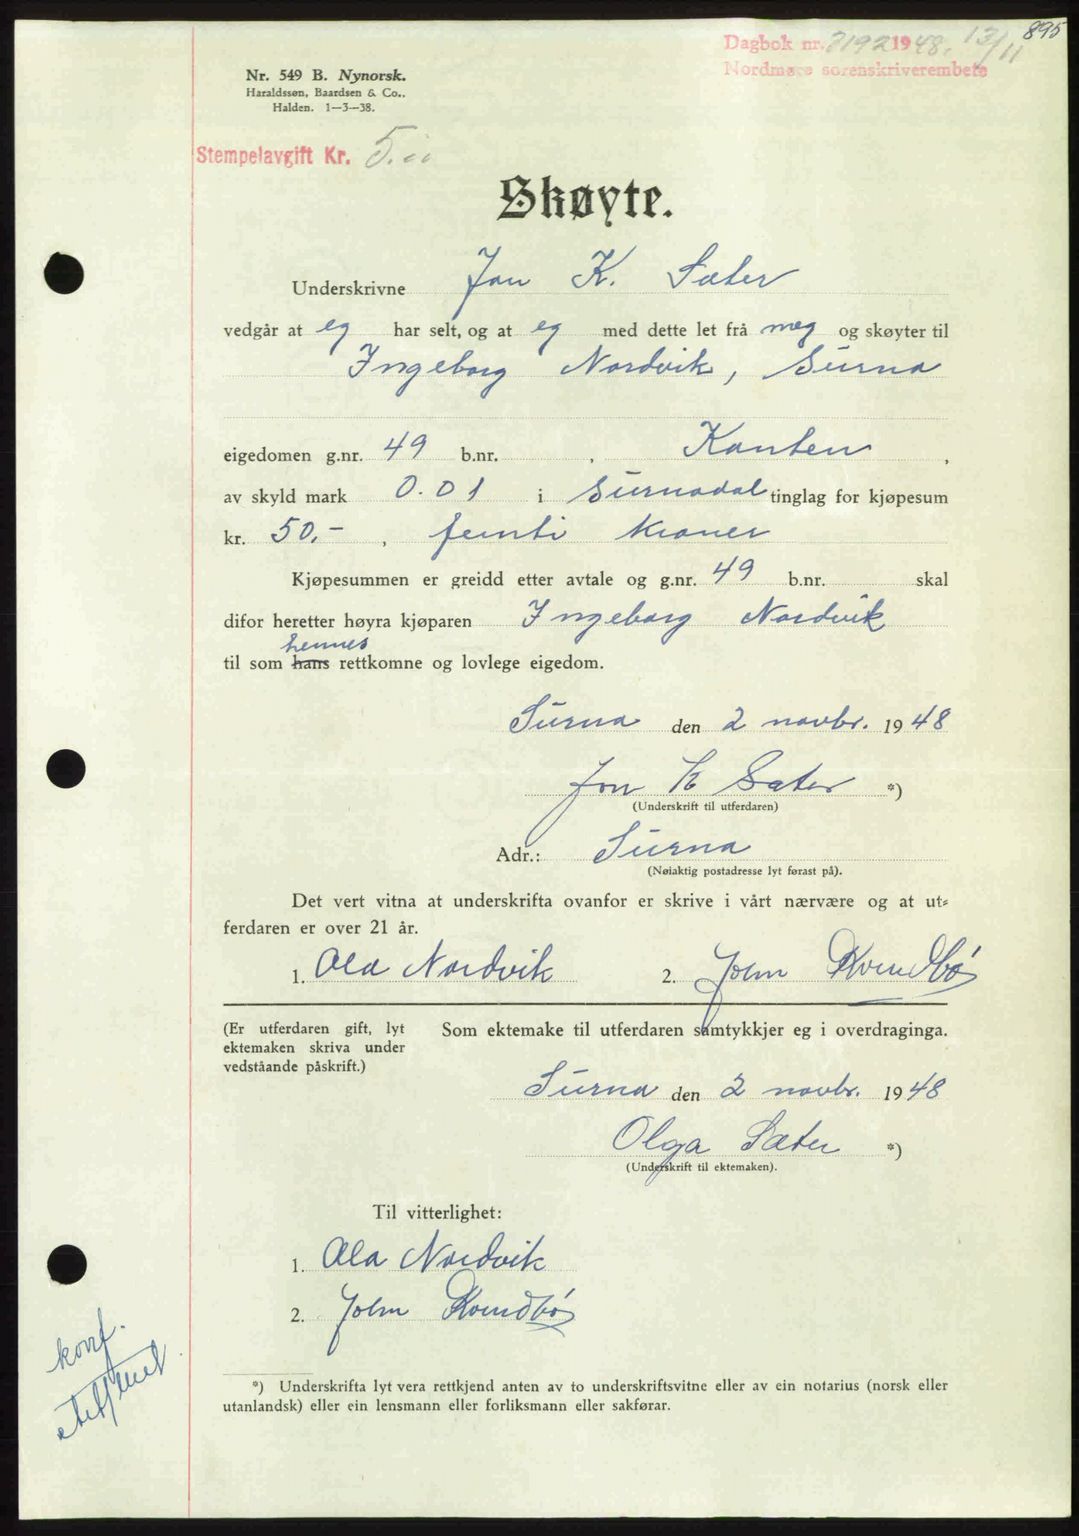 895
Dagbok nr. 3192 1948. 13/11
Nordmøre sorenskriverembete
Nr. 549 B. Nynorsk.
Haraldssøn, Baardsen & Co..
Halden. 1—3—38.
Stempelavgift Kr. 5.00
Skøyte.
Underskrivne Jon K. Sæter
vedgår at eg har selt, og at eg med dette let frå meg og skøyter til
Ingeborg Nordvik, Surna
eigedomen g.nr. 49 b.nr. , Kanten ,
av skyld mark 0.01 i Surnadal tinglag for kjøpesum
kr. 50.- , femti kroner
Kjøpesummen er greidd etter avtale og g.nr. 49 b.nr. skal
difor heretter høyra kjøparen Ingeborg Nordvik
hennes
til som hans rettkomne og lovlege eigedom.
Surna den 2 novbr. 1948
Jon K Sæter *)
(Underskrift til utferdaren)
Adr.: Surna
(Nøiaktig postadresse lyt førast på).
Det vert vitna at underskrifta ovanfor er skrive i vårt nærvære og at ut=
ferdaren er over 21 år.
1. Ola Nordvik 2. John Kvendbø
(Er utferdaren gift, lyt
ektemaken skriva under
vedståande påskrift.)
Som ektemake til utferdaren samtykkjer eg i overdraginga.
Surna den 2 novbr. 1948
Olga Sæter *)
(Underskrift til ektemaken).
Til vitterlighet:
1. Ola Nordvik
2. John Kvendbø
konf.
*) Underskrifta lyt vera rettkjend anten av to underskriftsvitne eller av ein notarius (norsk eller
utanlandsk) eller ein lensmann eller forliksmann eller sakførar.